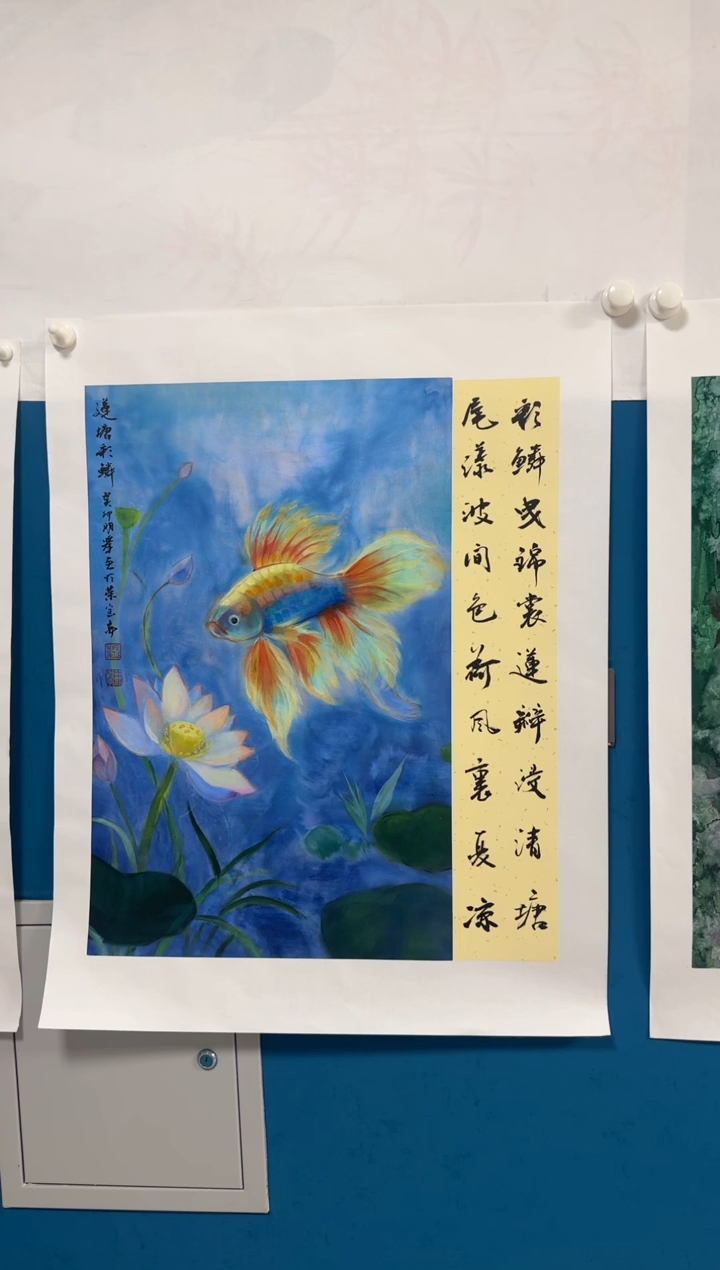 彩鳞曳锦裳莲瓣浸清塘
尾漾波间色荷风裏夏凉
莲塘彩鳞
癸卯明